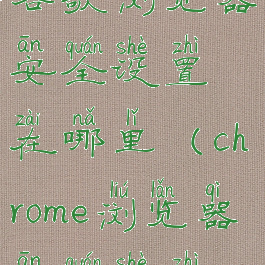 谷歌浏览器
ān quán shè zhì
安全设置
zài nǎ lǐ
在哪里（ch
liú lǎn qì
rome浏览器
ān quán shè zhì